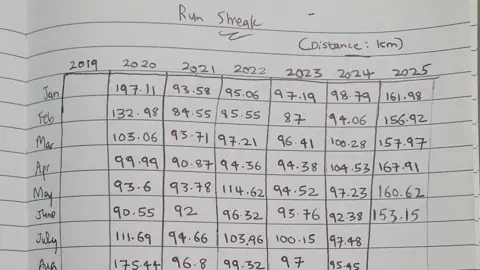 Run Streak
(Distance: km)
2019 2020 2021 2022 2023 2024 2025
Jan 197.11 93.58 95.06 97.19 98.79 161.98
Feb 132.98 84.55 95.55 87 94.06 156.92
Mar 103.06 93.71 97.21 96.41 100.28 157.97
Apr 99.99 90.87 94.36 94.38 104.53 167.91
May 93.6 93.78 114.62 94.52 97.23 160.62
June 90.55 92 96.32 93.76 92.38 153.15
July 111.69 94.66 103.96 100.15 97.48
Aug 175.44 96.8 99.32 97 95.45